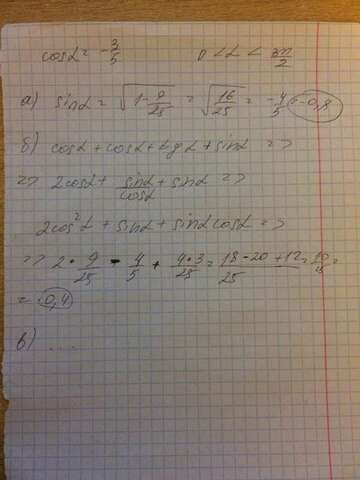 cosα = -3/5   π < α < 3π/2
а) sinα = √(1-9/25) = √(16/25) = -4/5 = -0,8
б) cosα + cosα + tgα + sinα =>
=> 2cosα + sinα/cosα + sinα =>
2cos²α + sinα + sinα cosα =>
=> 2·9/25 - 4/5 + 4·3/25 = (18-20+12)/25 = 10/25 =
= 0,4
в) ...